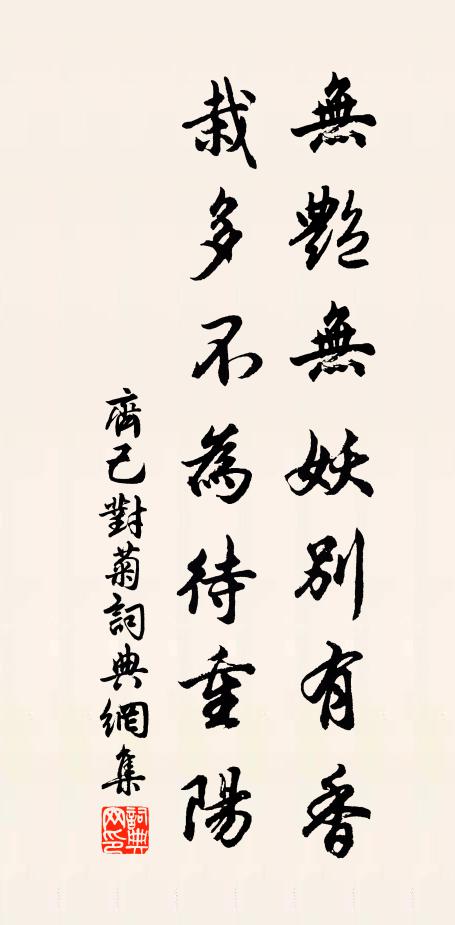 無艷無妖別有香
栽多不為待重陽
齊己對菊詞典網集
詞典網印